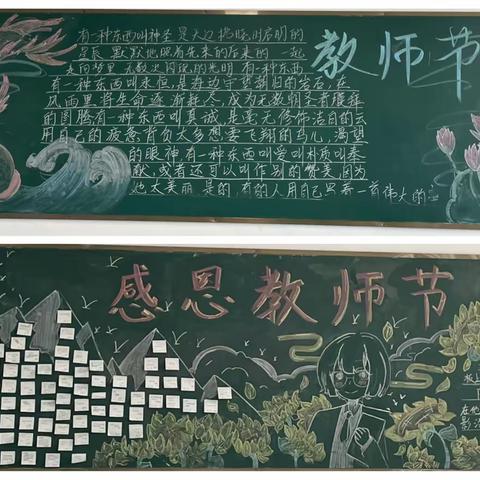 教师节
有一种东西叫神圣 是天边挑晓叫启明的
星辰 默默地照着先来的后来的 一起
走向梦里 无数次闪现的光明 有一种东西
有一种东西叫永恒,是海边守望潮归的岩石,在
风雨里将生命逐渐耗尽,成为无数朝圣者膜拜
的图腾有一种东西叫真诚,是毫无修饰洁白的云
用自己的疲惫背负太多想要飞翔的鸟儿,渴望
的眼神有一种东西叫爱叫朴质叫奉
献,或者还可以叫作别的赞美,因为
她太美丽 是的,有的人用自己写着一首伟大的
感恩教师节
在他
影